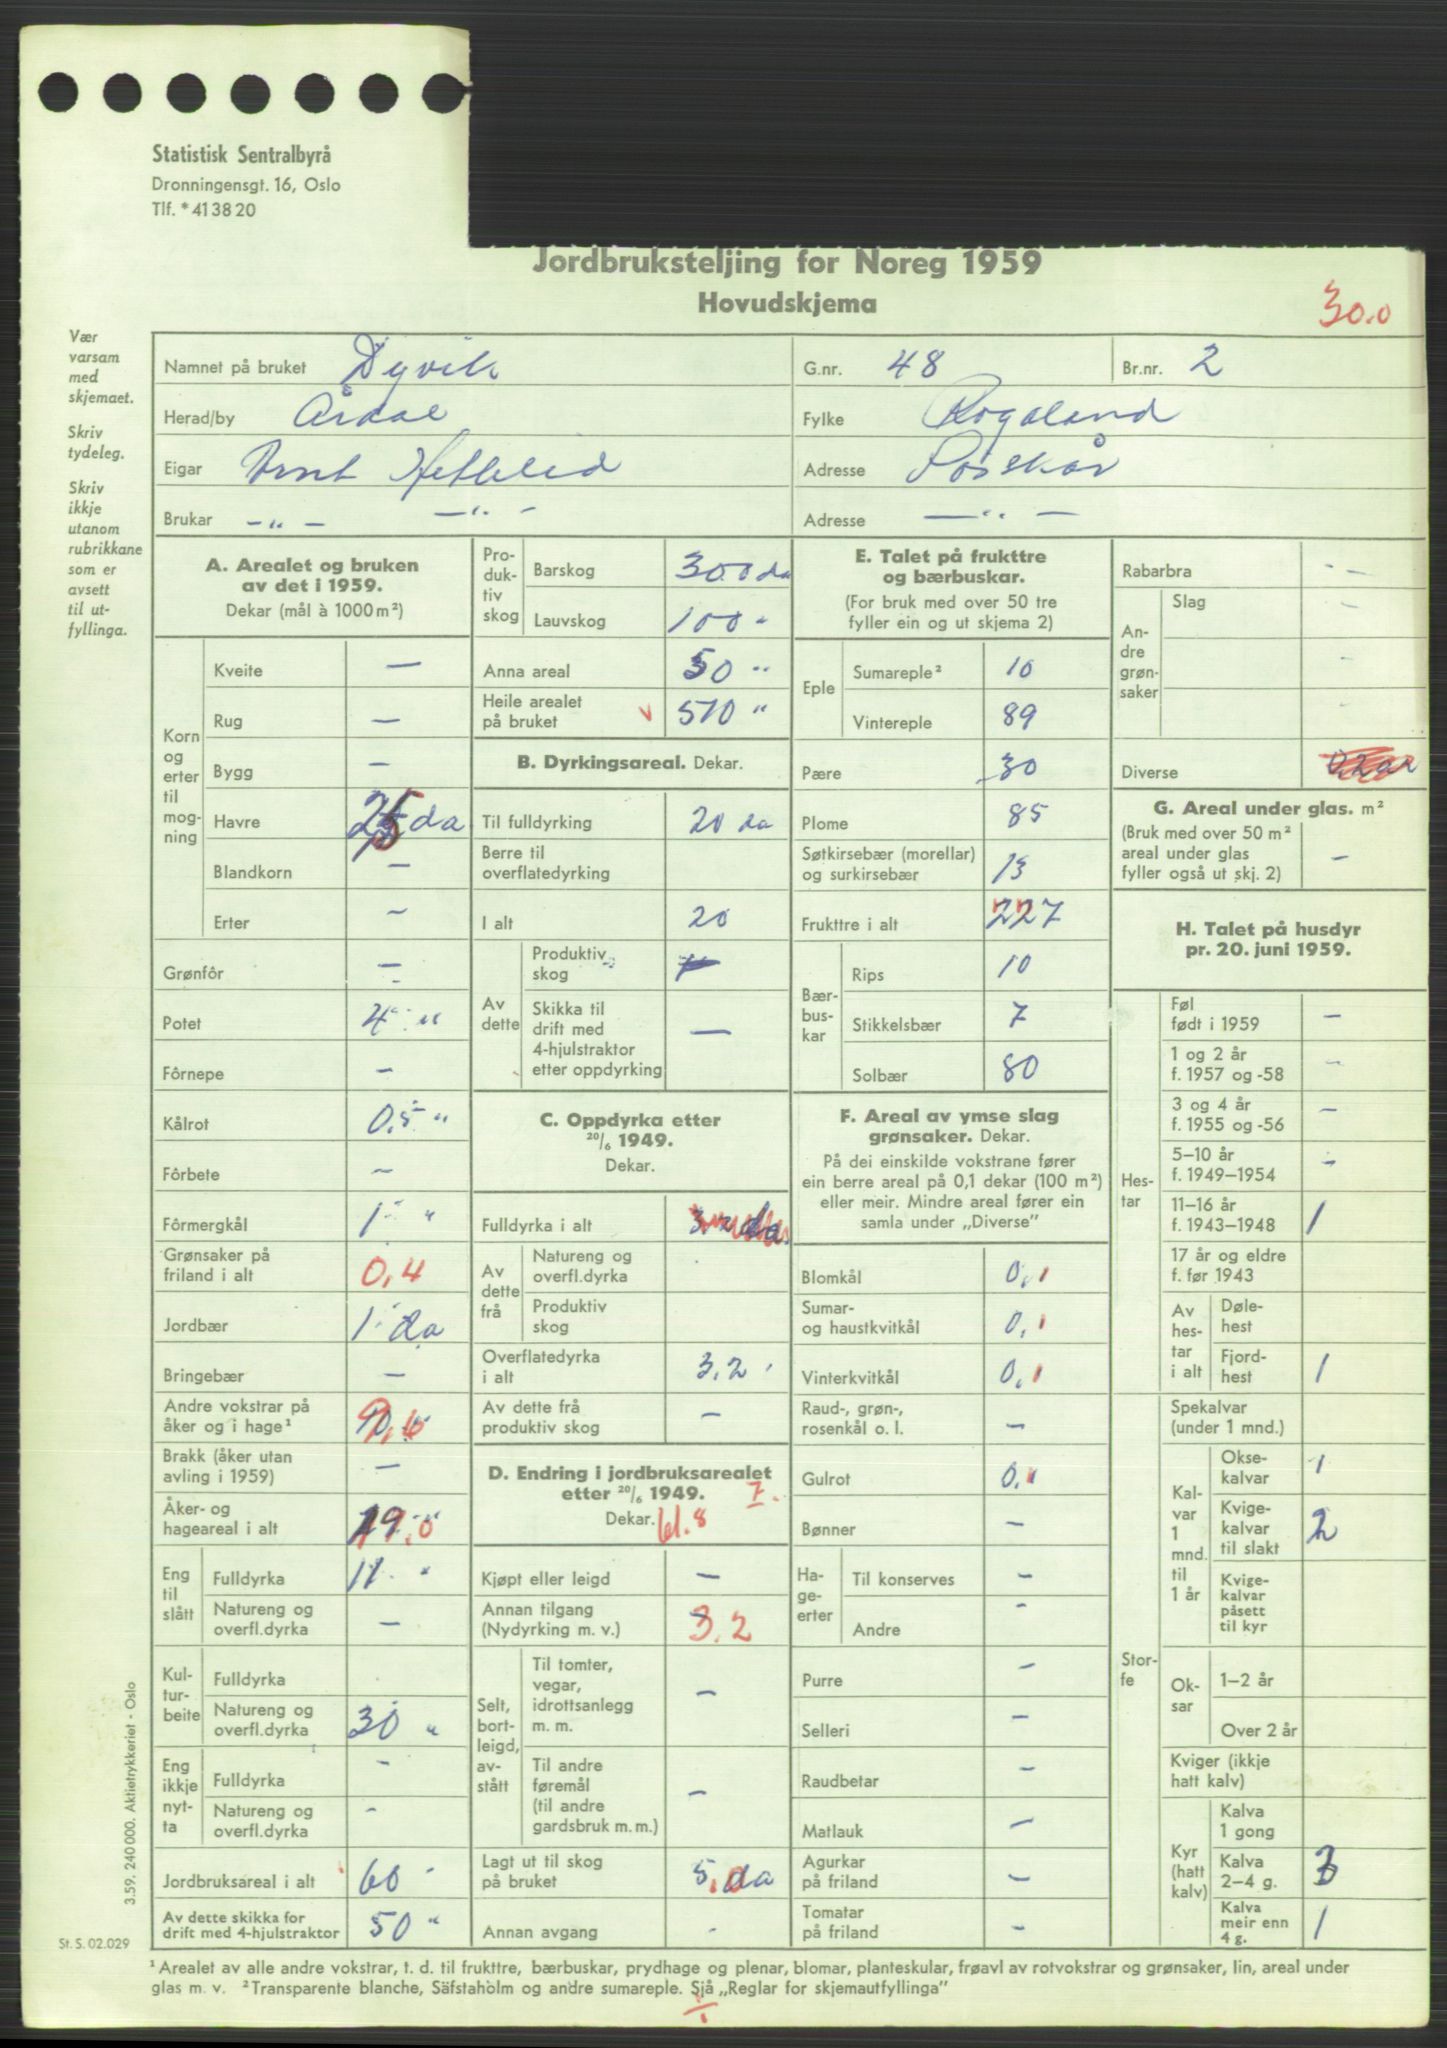 Statistisk Sentralbyrå
Dronningensgt. 16, Oslo
Tlf. * 41 38 20
Jordbruksteljing for Noreg 1959
Hovudskjema
30.0
Vær
varsam
med
skjemaet.
Skriv
tydeleg.
Skriv
ikkje
utanom
rubrikkane
som er
avsett
til ut-
fyllinga.
Namnet på bruket Dyvik G.nr. 48 Br.nr. 2
Herad/by Årdal Fylke Rogaland
Eigar Arnt Hetlelid Adresse
Brukar — " — — " — Adresse — " —
A. Arealet og bruken
av det i 1959.
Dekar (mål à 1000 m²)
Korn
og
erter
til
mog-
ning
Kveite —
Rug —
Bygg —
Havre da
Blandkorn —
Erter —
Grønfôr —
Potet 4 "
Fôrnepe —
Kålrot 0,5 "
Fôrbete —
Fôrmergkål 1 "
Grønsaker på
friland i alt 0,4
Jordbær 1 da
Bringebær —
Andre vokstrar på
åker og i hage¹
Brakk (åker utan
avling i 1959) —
Åker- og
hageareal i alt 19,0
Eng
til
slått
Fulldyrka 11 "
Natureng og
overfl.dyrka —
Kul-
tur-
beite
Fulldyrka
Natureng og
overfl.dyrka 30 "
Eng
ikkje
nyt-
ta
Fulldyrka —
Natureng og
overfl.dyrka —
Jordbruksareal i alt 60
Av dette skikka for
drift med 4-hjulstraktor 50 "
Pro-
duk-
tiv
skog
Barskog 300 da
Lauvskog 100 "
Anna areal 50 "
Heile arealet
på bruket 510 "
B. Dyrkingsareal. Dekar.
Til fulldyrking 20 da
Berre til
overflatedyrking
I alt 20
Av
dette
Produktiv
skog
Skikka til
drift med
4-hjulstraktor
etter oppdyrking —
C. Oppdyrka etter
20/6 1949.
Dekar.
Fulldyrka i alt 3,2 da
Av
dette
frå
Natureng og
overfl.dyrka
Produktiv
skog
Overflatedyrka
i alt 3,2
Av dette frå
produktiv skog —
D. Endring i jordbruksarealet
etter 20/6 1949. 7.
Dekar. 61.8
Kjøpt eller leigd —
Annan tilgang
(Nydyrking m. v.) 3.2
Selt,
bort-
leigd,
av-
stått
Til tomter,
vegar,
idrottsanlegg
m. m. —
Til andre
føremål
(til andre
gardsbruk m. m.) —
Lagt ut til skog
på bruket 5,0 da
Annan avgang -
E. Talet på frukttre
og bærbuskar.
(For bruk med over 50 tre
fyller ein og ut skjema 2)
Eple
Sumareple² 10
Vintereple 89
Pære 30
Plome 85
Søtkirsebær (morellar)
og surkirsebær 13
Frukttre i alt 227
Bær-
bus-
kar
Rips 10
Stikkelsbær 7
Solbær 80
F. Areal av ymse slag
grønsaker. Dekar.
På dei einskilde vokstrane fører
ein berre areal på 0,1 dekar (100 m²)
eller meir. Mindre areal fører ein
samla under „Diverse”
Blomkål 0,1
Sumar-
og haustkvitkål 0,1
Vinterkvitkål 0,1
Raud-, grøn-,
rosenkål o. l. —
Gulrot 0,1
Bønner —
Ha-
ge-
erter
Til konserves —
Andre —
Purre —
Selleri —
Raudbetar —
Matlauk —
Agurkar
på friland —
Tomatar
på friland —
Rabarbra — —
An-
dre
grøn-
saker
Slag —
-
-
Diverse
G. Areal under glas. m²
(Bruk med over 50 m²
areal under glas
fyller også ut skj. 2) —
H. Talet på husdyr
pr. 20. juni 1959.
Hes-
tar
Føl
født i 1959 —
1 og 2 år
f. 1957 og -58 —
3 og 4 år
f. 1955 og -56 —
5–10 år
f. 1949–1954 —
11–16 år
f. 1943–1948 1
17 år og eldre
f. før 1943
Av
hes-
tar
i alt
Døle-
hest
Fjord-
hest 1
Stor-
fe
Spekalvar
(under 1 mnd.)
Kal-
var
1
mnd.
til
1 år
Okse-
kalvar 1
Kvige-
kalvar
til slakt 2
Kvige-
kalvar
påsett
til kyr
Ok-
sar
1–2 år
Over 2 år
Kviger (ikkje
hatt kalv)
Kyr
(hatt
kalv)
Kalva
1 gong
Kalva
2–4 g. 3
Kalva
meir enn
4 g. 1
3.59. 240 000. Aktietrykkeriet - Oslo
St. S. 02.029
¹ Arealet av alle andre vokstrar, t. d. til frukttre, bærbuskar, prydhage og plenar, blomar, planteskular, frøavl av rotvokstrar og grønsaker, lin, areal under
glas m. v. ² Transparente blanche, Säfstaholm og andre sumareple. Sjå „Reglar for skjemautfyllinga”